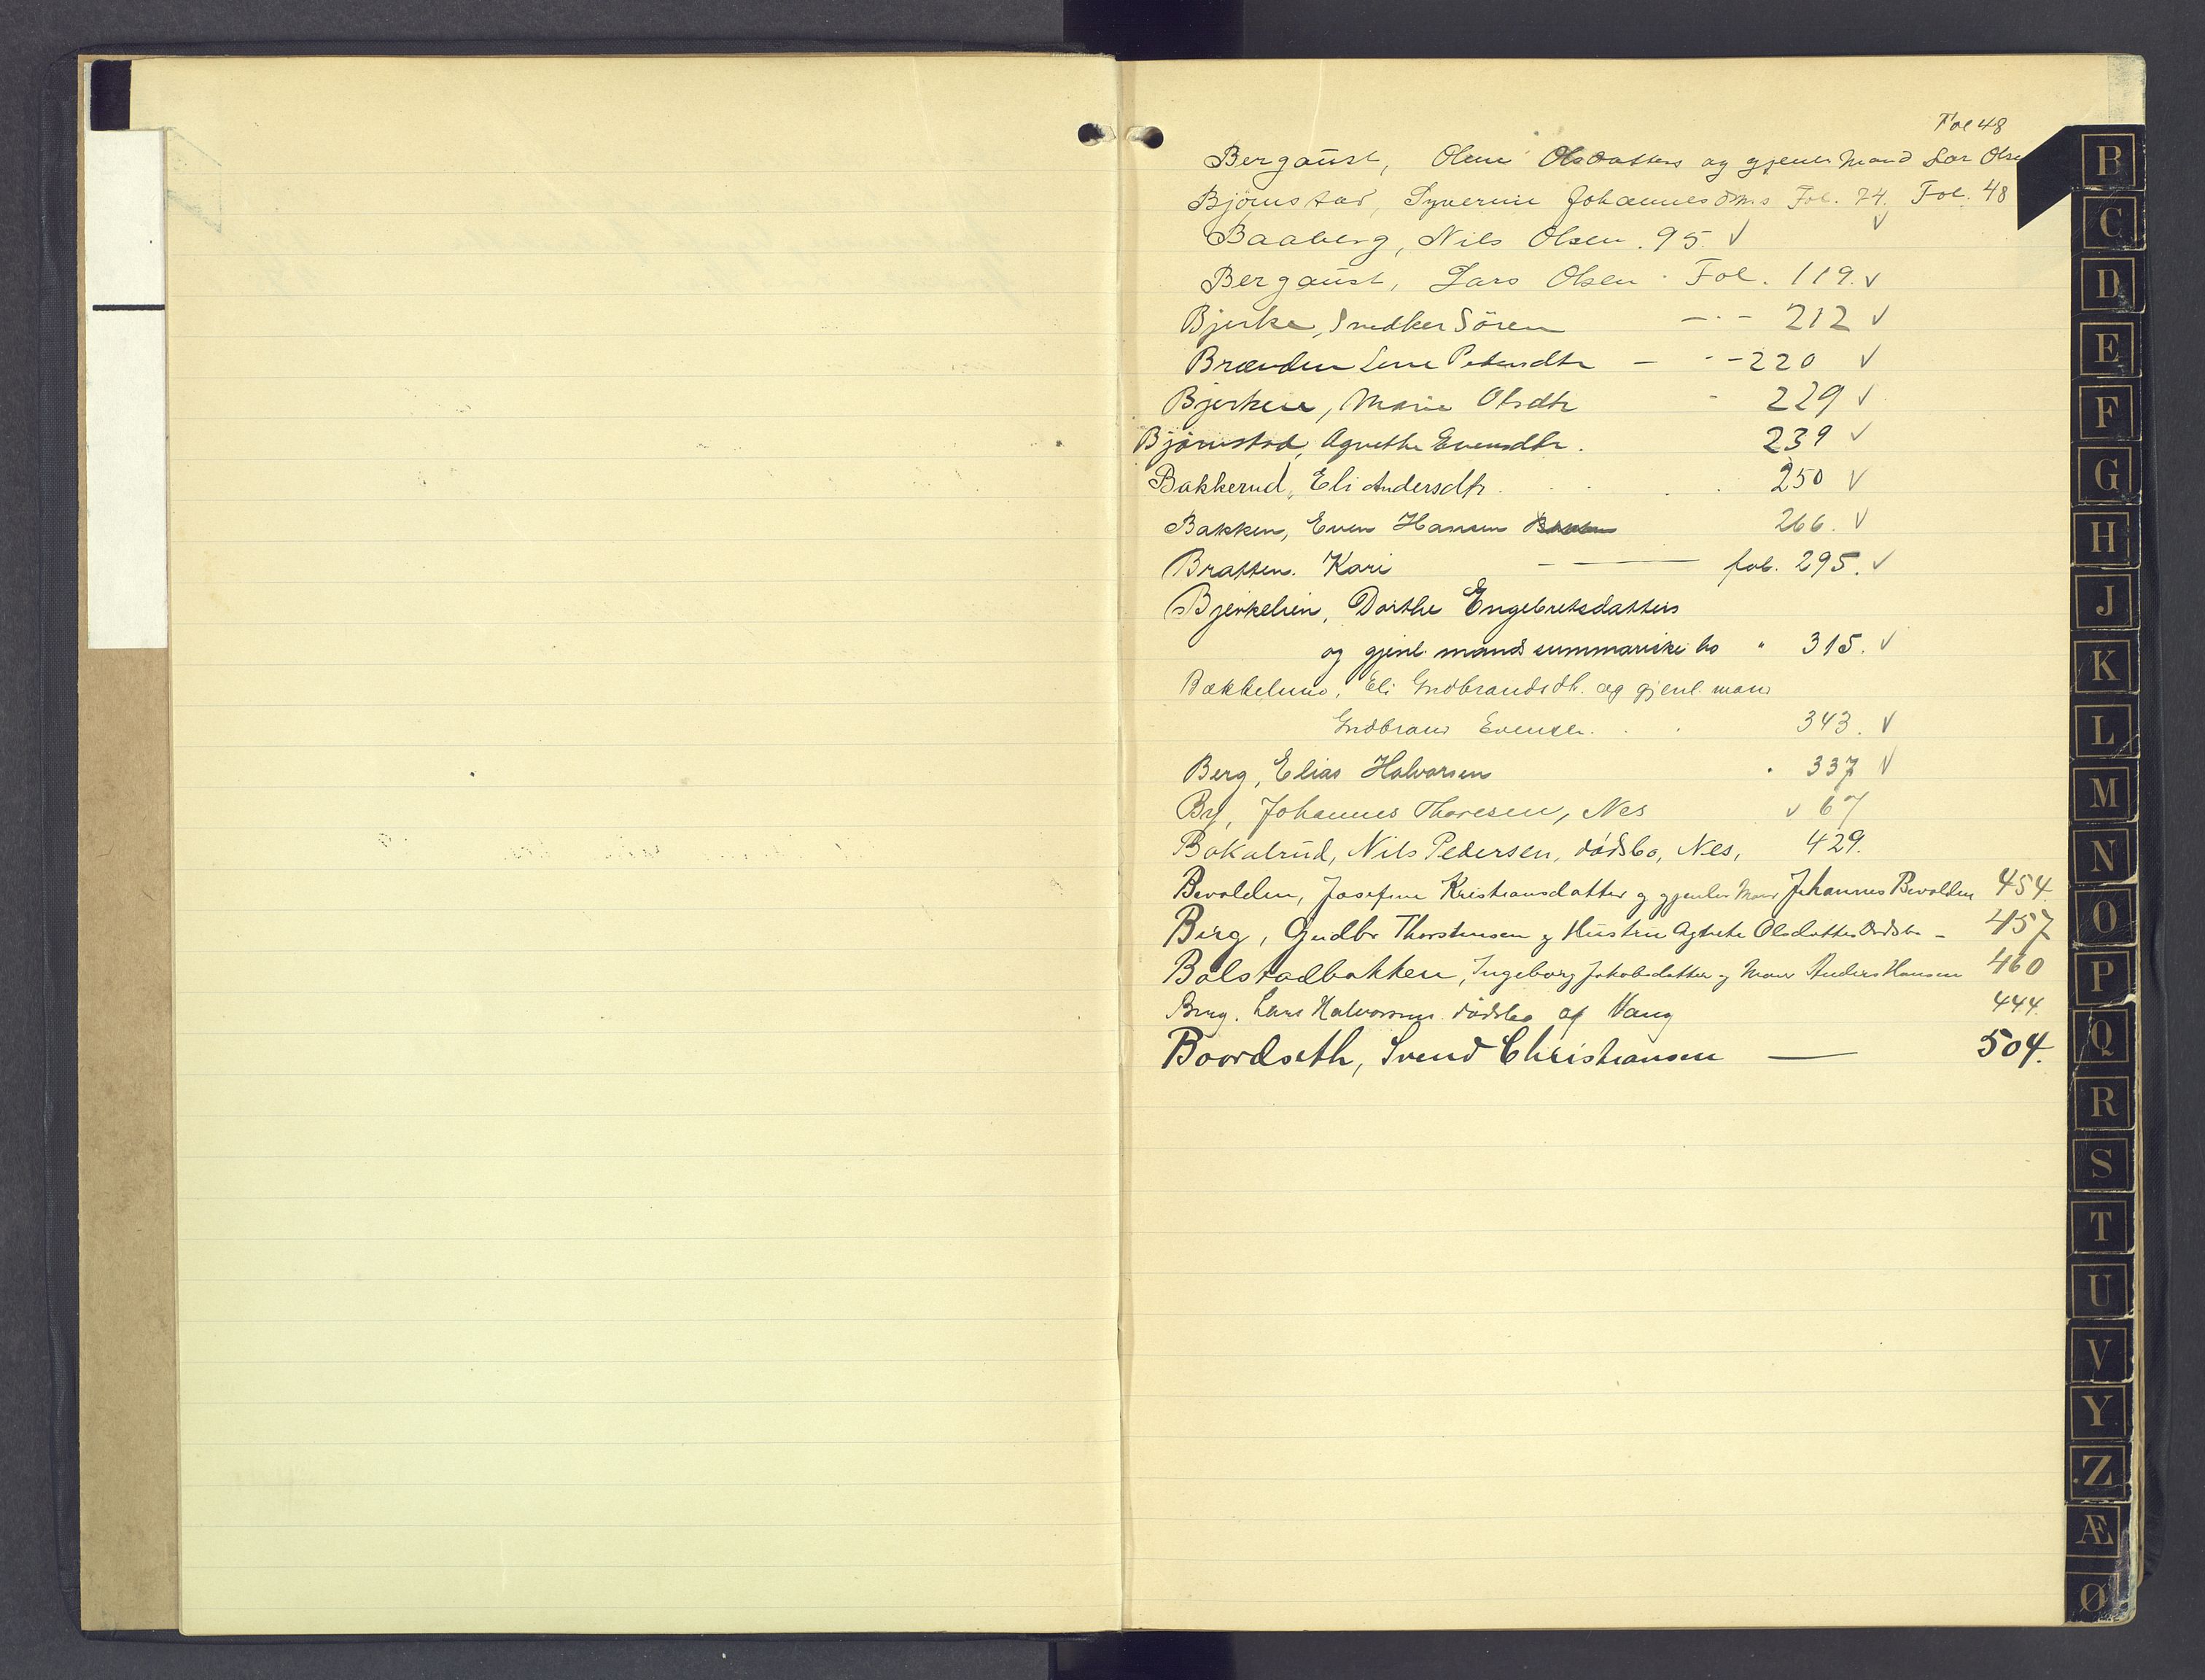 Fol 48
Bergaust, Olene Olsdatters og gjenlev Mand Lar Olse
Björnstad, Syverine Johannesdtrs Fol. 74. Fol. 48
Baaberg, Nils Olsen. 95. V
Bergaust, Lars Olsen Fol. 119. V
Bjerke, Snedker Sören — " — 212 V
Brænden Lene Pedersdtr — " — 220 V
Bjerkeie, Marie Olsdtr " 229 V
Björnstad, Agnethe Evensdtr. 239 V
Bakkerud, Eli Andersdtr. 250 V
Bakken, Even Hansen 266. V
Bratten. Kari — fol. 295. V
Bjerkelien, Dorthe Engebretsdatters
og gjenl. mands summariske bo " 315. V
Bækkelund, Eli Gudbrandsdtr. og gjenl. mand
Gudbrand Evensen. 343. V
Berg, Elias Halvorsen 337 V
By, Johannes Thoresen, Nes V 67
Bakalrud, Nils Pedersen, dødsbo, Nes, 429.
Bevolden, Josefine Kristiansdatter og gjenlev Mand Johannes Bevolden 454
Berg, Gudbr Thorstensen og Hustru Agnete Olsdatters Dødsbo — 457
Bolstadbakken, Ingeborg Jakobsdatter og Mand Anders Hansen 460
Berg. Lars Halvorsens dødsbo af Vang 444.
Boordseth, Svend Christiansen — 504.
B
C
D
E
F
G
H
J
K
L
M
N
O
P
Q
R
S
T
U
V
Y
Z
Æ
Ø